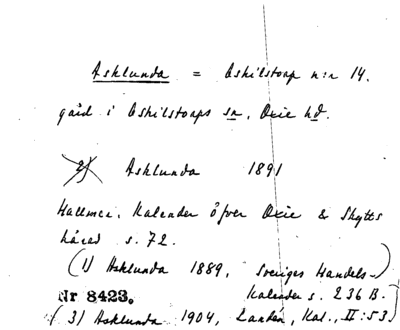 Asklunda = Eskilstorp n:r 14.
gård i Eskilstorps sn, Oxie hd.
2) Asklunda 1891
Hallmer. Kalender öfver Oxie & Skytts
härad s. 72.
(1) Asklunda 1889, Sveriges Handels-)
Nr 8423. Kalender s. 236 B.
(3) Asklunda 1904, Landen, Kal., II:53)